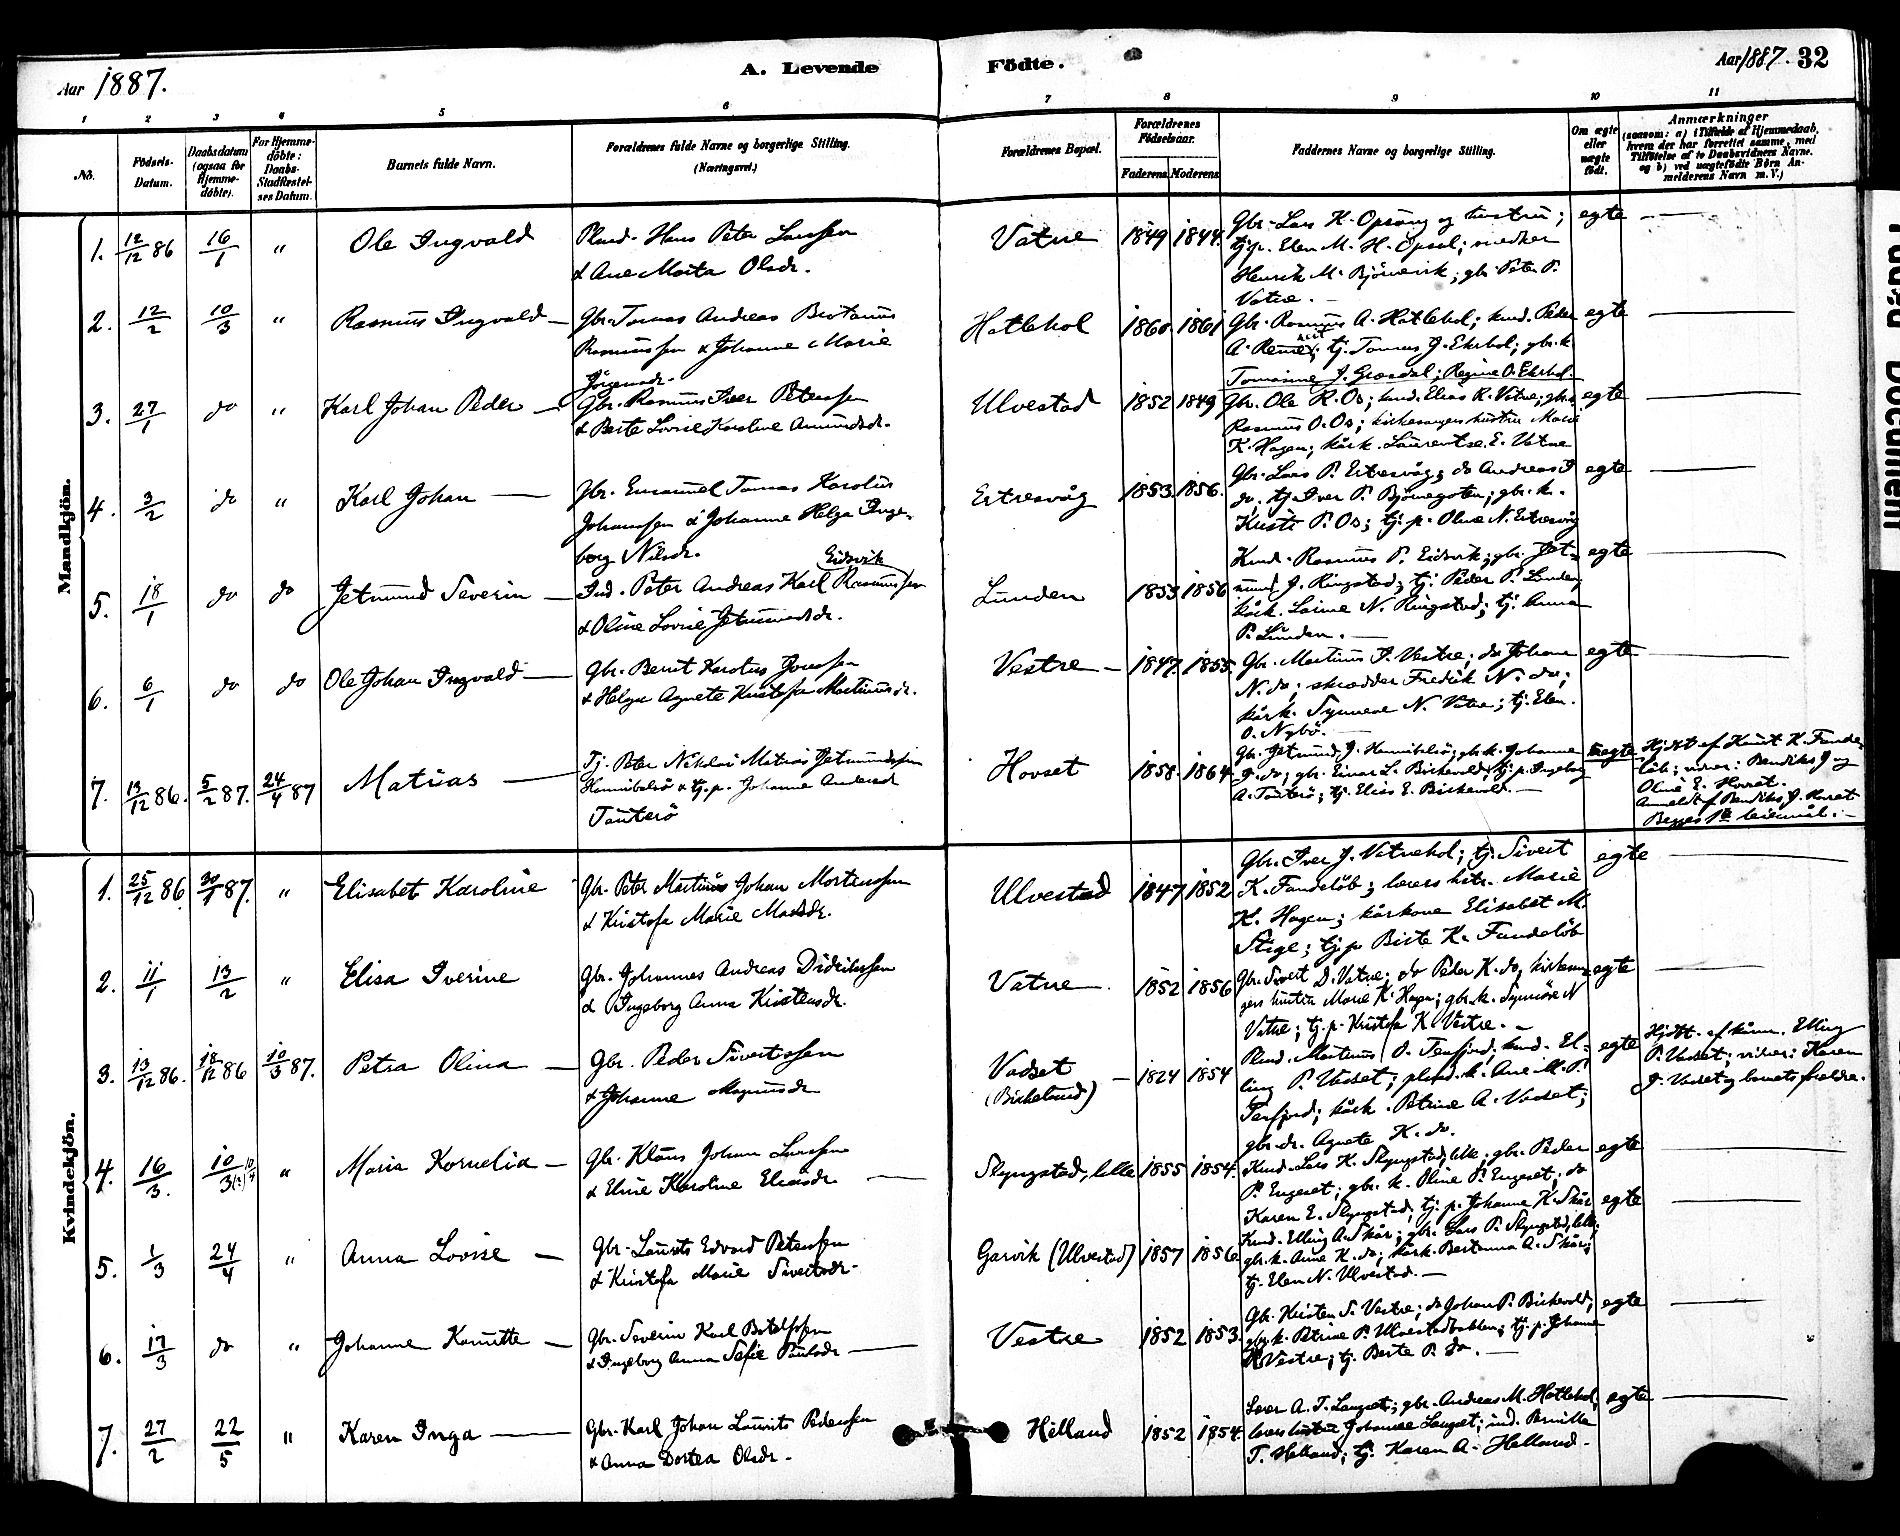 Aar 1887.
A. Levende
Födte.
Aar 1887. 32
1 2 3 4 5 6 7 8 9 10 11
No.
Födsels-Datum.
Daabsdatum (ogsaa for Hjemme-döbte).
For Hjemme-döbte: Daabs-Stadfæstel-ses Datum.
Barnets fulde Navn.
Forældrenes fulde Navne og borgerlige Stilling.
(Næringsvei.)
Forældrenes Bopæl.
Forældrenes Födselsaar.
Faderens. Moderens.
Faddernes Navne og borgerlige Stilling.
Om ægte eller uægte födt.
Anmærkninger
(saasom: a) i Tilfælde af Hjemmedaab,
hvem der har forrettet samme, med
Tilföielse af to Daabsvidners Navne.
og b) ved uægtefödte Börn An-
melderens Navn m. V.)
Mandkjön.
1. 12/12 86 16/1 " Ole Ingvald
Plmd. Hans Peter Larssen
& Ane Marta Olsdr.
Vatne 1849 1844.
Gbr. Lars K. Opsang og hustru;
tj.p. Elen M. H. Opsal; snedker
Henrik M. Björnevik; gbr. Peter P.
Vatne. -
egte
2. 12/2 10/3 " Rasmus Ingvald -
Gbr. Tomas Andreas Brotanus
Rasmussen & Johanne Marie
Jörgensdr.
Hatlehol 1860. 1861
Gbr. Rasmus A. Hatlehol; kmd. Peder
A. ; tj. Tomas J. Ekrhol; gbr. k.
Tomasine J. Græsdal; Regine O. Ekrhol.
egte
3. 27/1 do " Karl Johan Peder -
Gbr. Rasmus Iver Peterssen
& Berte Lovise Karoline Amundsdr.
Ulvestad 1852 1849
Gbr. Ole R. Os; kmd. Elias R. Vatne; gbrs.
Rasmus O. Os; kirkesangers hustru Marie
K. Hagen; kårk. Laurentse E. Vatne
egte
4. 3/2 do " Karl Johan -
Gbr. Emanuel Tomas Karolus
Johanssen & Johanne Helga Inge-
borg Nilsdr.
Ertresvåg 1853. 1856.
Gbr. Lars P. Ertresvåg; do Andreas I
do; tj. Iver P. Björnegoten; gbr. k.
Kristi P. Os; tj. p. Oline N. Ertresvåg
egte
5. 18/1 do do Jetmund Severin -
Eidsvik
Ind. Peter Andreas Karl Rasmussen
& Oline Lovise Jetmundsdr.
Lunden 1853 1856
Kmd. Rasmus P. Eidsvik; gbr. Jet-
mund J. Ringstad; tj. Peder P. Lunden;
kårk. Laine N. Ringstad; tj. Anna
P. Lunden. -
egte
6. 6/1 do do Ole Johan Ingvald -
Gbr. Bernt Karolus Jonssen
& Helga Agnete Kristofa Martinusdr.
Vestre - 1847. 1855.
Gbr. Martinus I. Vestre; do Johan
N. do; skrædder Fredrik N. do;
kårk. Synneve N. Vatne; tj. Elen
O. Nybö. -
egte
7. 13/12 86. 5/2 87. 24/4 87 Matias -
Tj. Peter Nikolai Matias Jetmundssen
Hennibelsö & tj. p. Johanne Andersdr
Tautersö
Hovset 1858. 1864.
Gbr. Jetmund J. Hennibelsö; gbr. k. Johanne
I. do; gbr. Einar L. Birkevold; tj. p. Ingeborg
A. Tauterö; tj. Elias E. Birkevold. -
uegte
Hjdbt af Knut K. Fande-
löb; vidner: Bendiks J. og
Oline E. Hovset.
Anmeldt af Bendiks J. Hovset
Begges 1ste leiermål. -
Kvindekjön.
1. 25/12 86 30/1 87. " Elisabet Karoline
Gbr. Peter Martinus Johan Mortenssen
& Kristofa Marie Madsdr.
Ulvestad 1847. 1852
Gbr. Iver J. Vatnehol; tj. Sivert
K. Fandelöb; lærers hstr. Marie
K. Hagen; kårkone Elisabet M.
Stige; tj. p Birte K. Fandelöb
egte
2. 11/1 13/2 " Elisa Iverine
Gbr. Johannes Andreas Didrikssen
& Ingeborg Anna Kristensdr.
Vatne 1852 1856
Gbr. Sivert D. Vatne; do Peder K. do; kirkesan-
gers hustru Marie K. Hagen; gbr. k. Synnöve N
Vatne; tj. p. Kristofa K. Vestre. -
egte
3. 13/12 86. 18/12 86 10/3 87. Petra Olina -
Gbr. Peder Sivertssen
& Johanne Magnusdr
Vadset
(Birkelund) - 1824 1854
Plmd. Martinus O. Tenfjord; kmd. El-
ling P. Vadset; plmd. k. Ane M. P.
Tenfjord; kårk. Petrine A. Vadset;
gbr. dr. Agnete K. do.
egte
Hjdbt. af kårm. Elling
P. Vadset; vidner: Karen
J. Vadset og barnets forældre.
4. 16/3. 10/3 " Maria Kornelia -
Gbr. Klaus Johan Larssen
& Eline Karoline Eliasdr.
Slyngstad, lille 1855 1854.
Kmd. Lars K. Slyngstad, lille; gbr. Peder
P. Engeset; gbr. k. Oline P. Engeset; do
Karen E. Slyngstad; tj. p. Johanne K. Skår
egte
5. 1/3 24/4 " Anna Lovise -
Gbr. Laurits Edvard Peterssen
& Kristofa Marie Sivertsdr.
Garvik (Ulvestad) 1857 1856.
Kmd. Elling A. Skår; gbr. Lars P. Slyngstad, lille;
gbr. k. Anne K. do; kårk. Bertanna A. Skår;
tj. Elen N. Ulvestad. -
egte
6. 17/3 do " Johanne Kamitte -
Gbr. Severin Karl Botolfssen
& Ingeborg Anna Sofie Paulsdr
Vestre 1852 1853.
Gbr. Kristen S. Vestre; do Johan P. Birkevold;
gbr. k. Petrine P. Ulvestadbakken; tj. p. Johanne
K. Vestre; tj. Berte P. do. -
egte
7. 27/2 22/5 " Karen Inga -
Gbr. Karl Johan Laurits Pederssen
& Anna Dortea Olsdr.
Helland 1852 1854.
Lærer A. T. Langset; gbr. Andreas M. Hatlehol;
lærers hustru Johanne Langset; ind. Brusilla
T. Helland; tj. Karen A. Helland.
egte